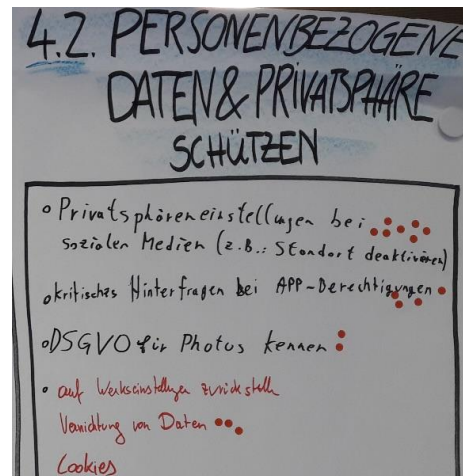 4.2. PERSONENBEZOGENE
DATEN & PRIVATSPHÄRE
SCHÜTZEN
• Privatsphäreneinstellungen bei
sozialen Medien (z.B.: Standort deaktivieren)
• kritisches Hinterfragen bei APP-Berechtigungen
• DSGVO für Photos kennen
• auf Werkseinstellungen zurückstellen
Vernichtung von Daten
Cookies